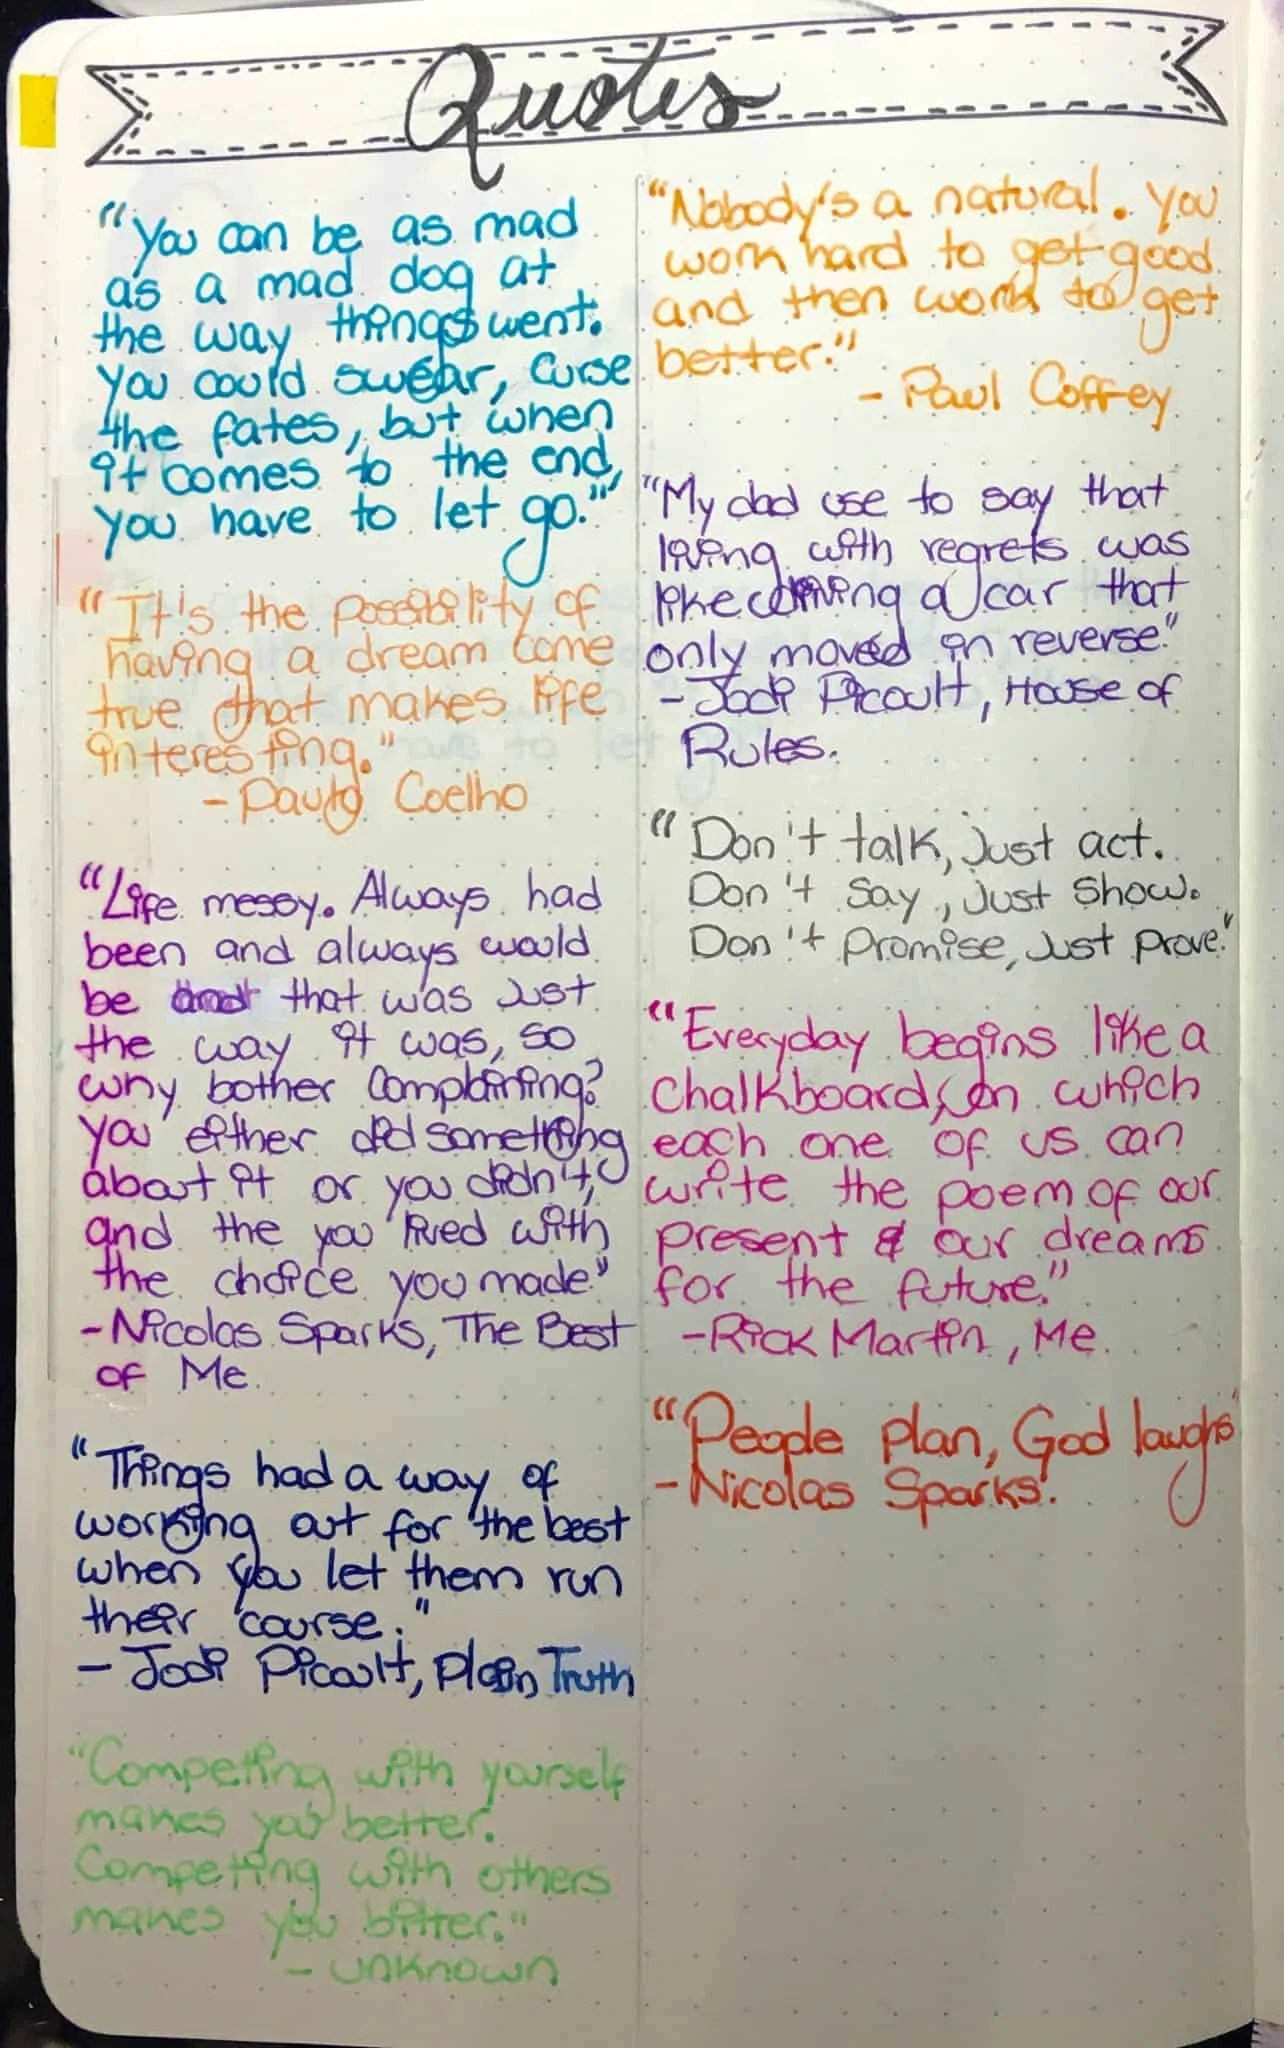 Quotes
"You can be as mad
as a mad dog at
the way things went.
You could swear, curse
the fates, but when
it comes to the end,
you have to let go."
"It's the possibility of
having a dream come
true that makes life
interesting."
- Paulo Coelho
"Life messy. Always had
been and always would
be and that was just
the way it was, so
why bother complaining?
You either did something
about it or you didn't,
and the you lived with
the choice you made"
- Nicolas Sparks, The Best
of Me.
"Things had a way of
working out for the best
when you let them run
their course."
- Jodi Picoult, Plain Truth
"Competing with yourself
makes you better.
Competing with others
makes you bitter."
- unknown
"Nobody's a natural. You
work hard to get good
and then work to get
better."
- Paul Coffey
"My dad use to say that
living with regrets was
like driving a car that
only moved in reverse"
- Jodi Picoult, House of
Rules.
"Don't talk, Just act.
Don't Say, Just Show.
Don't Promise, Just Prove."
"Everyday begins like a
chalkboard, on which
each one of us can
write the poem of our
present & our dreams
for the future."
- Rick Martin, Me.
"People plan, God laughs"
- Nicolas Sparks.